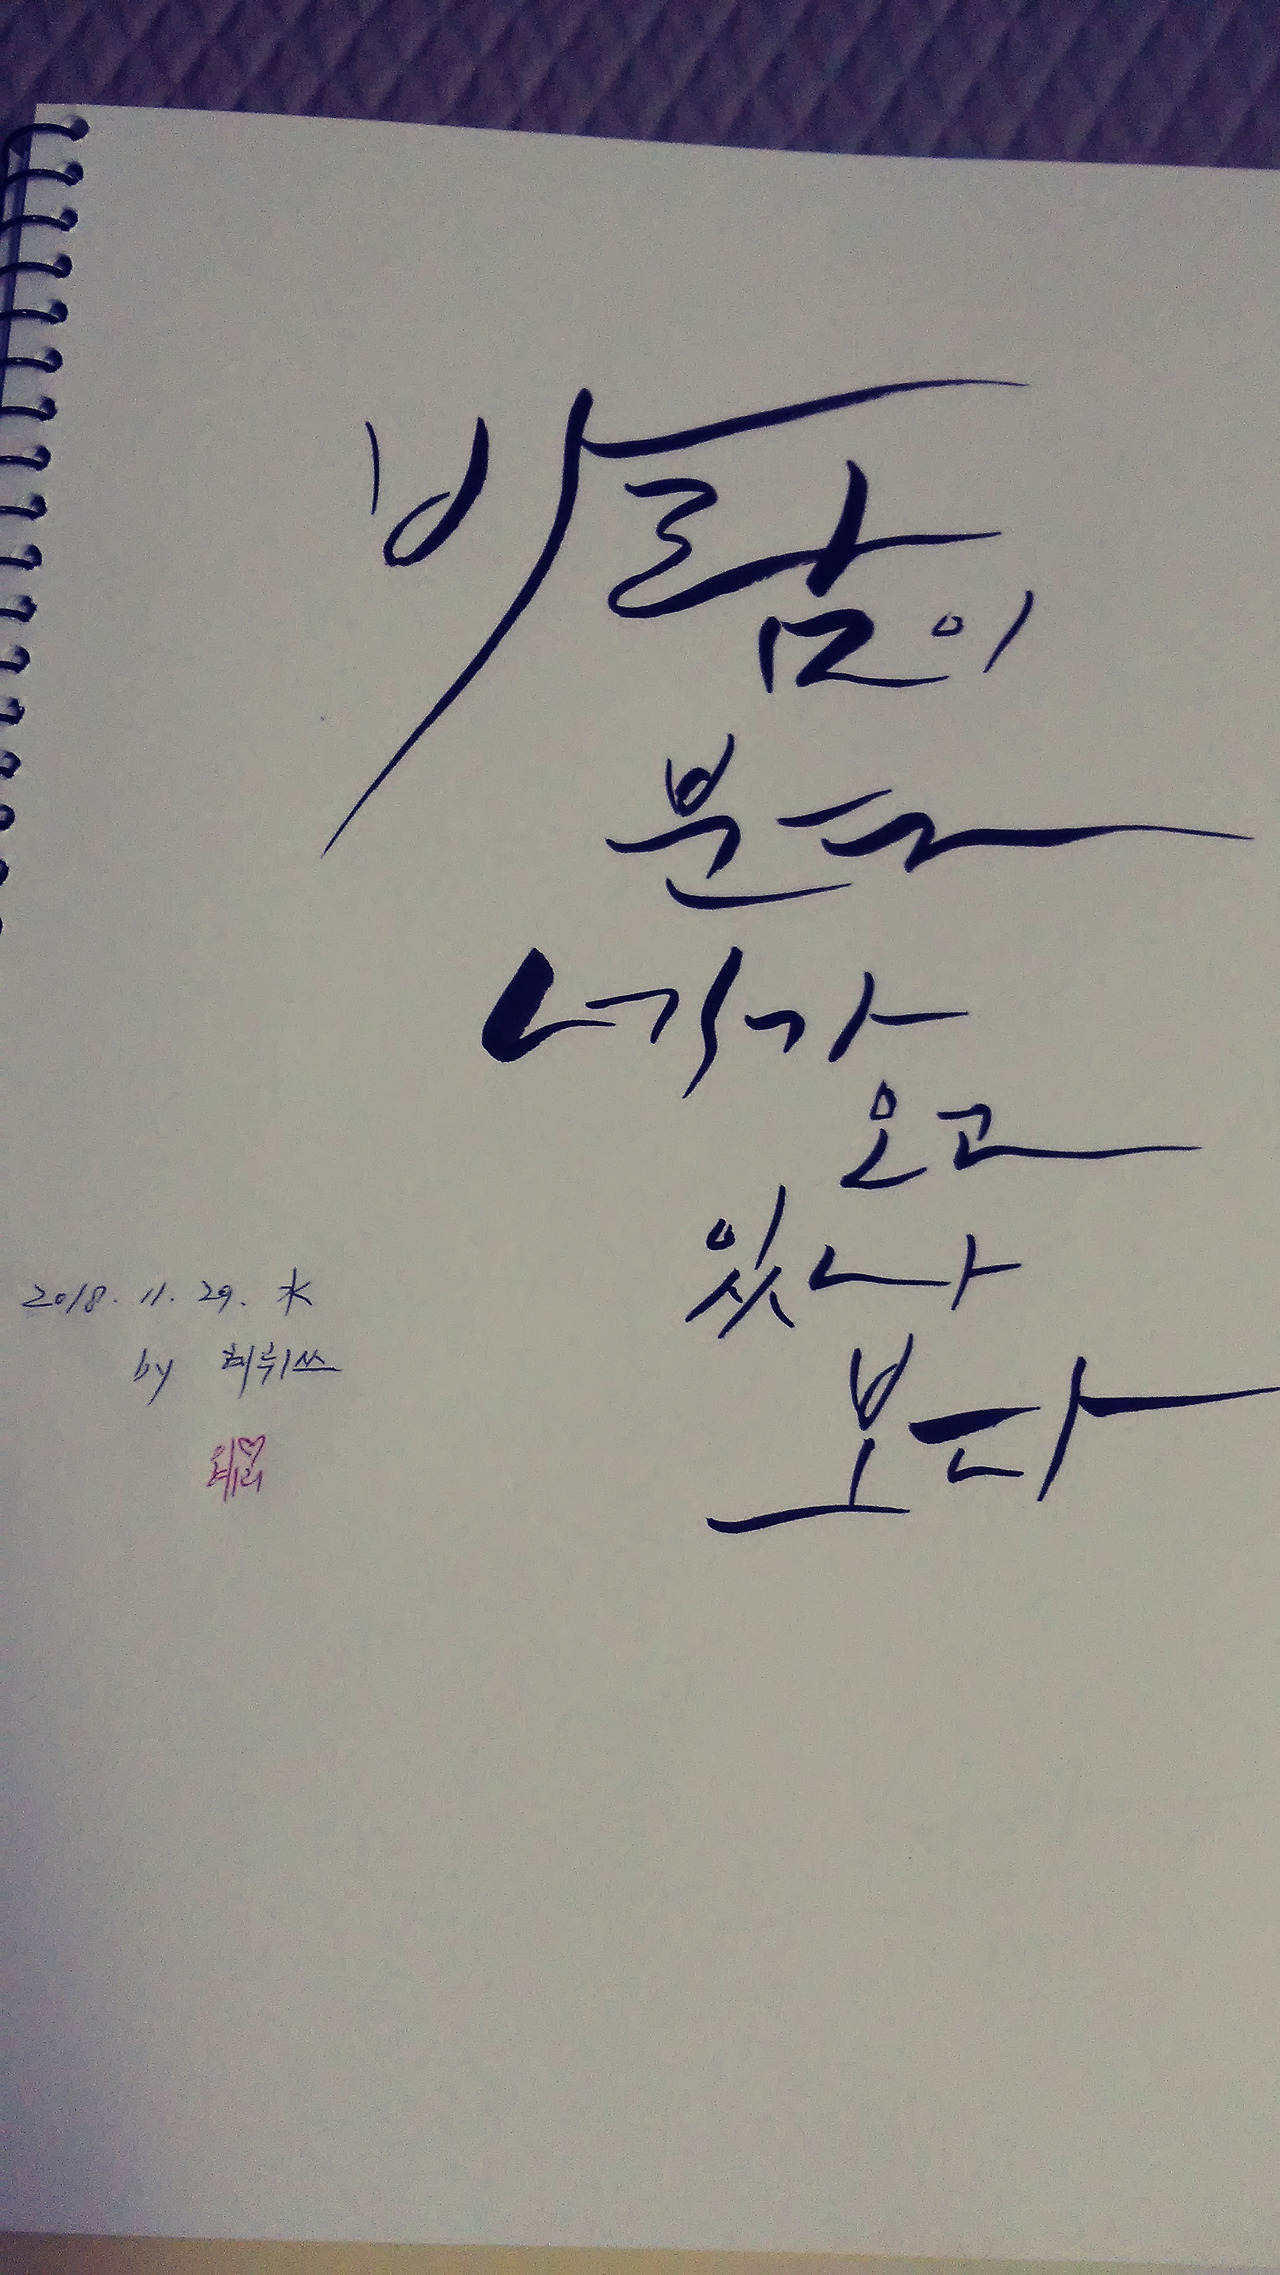 바람이
분다
네가
오고
있나
보다
2018. 11. 29. 水
by 혜뤼쓰
혜리